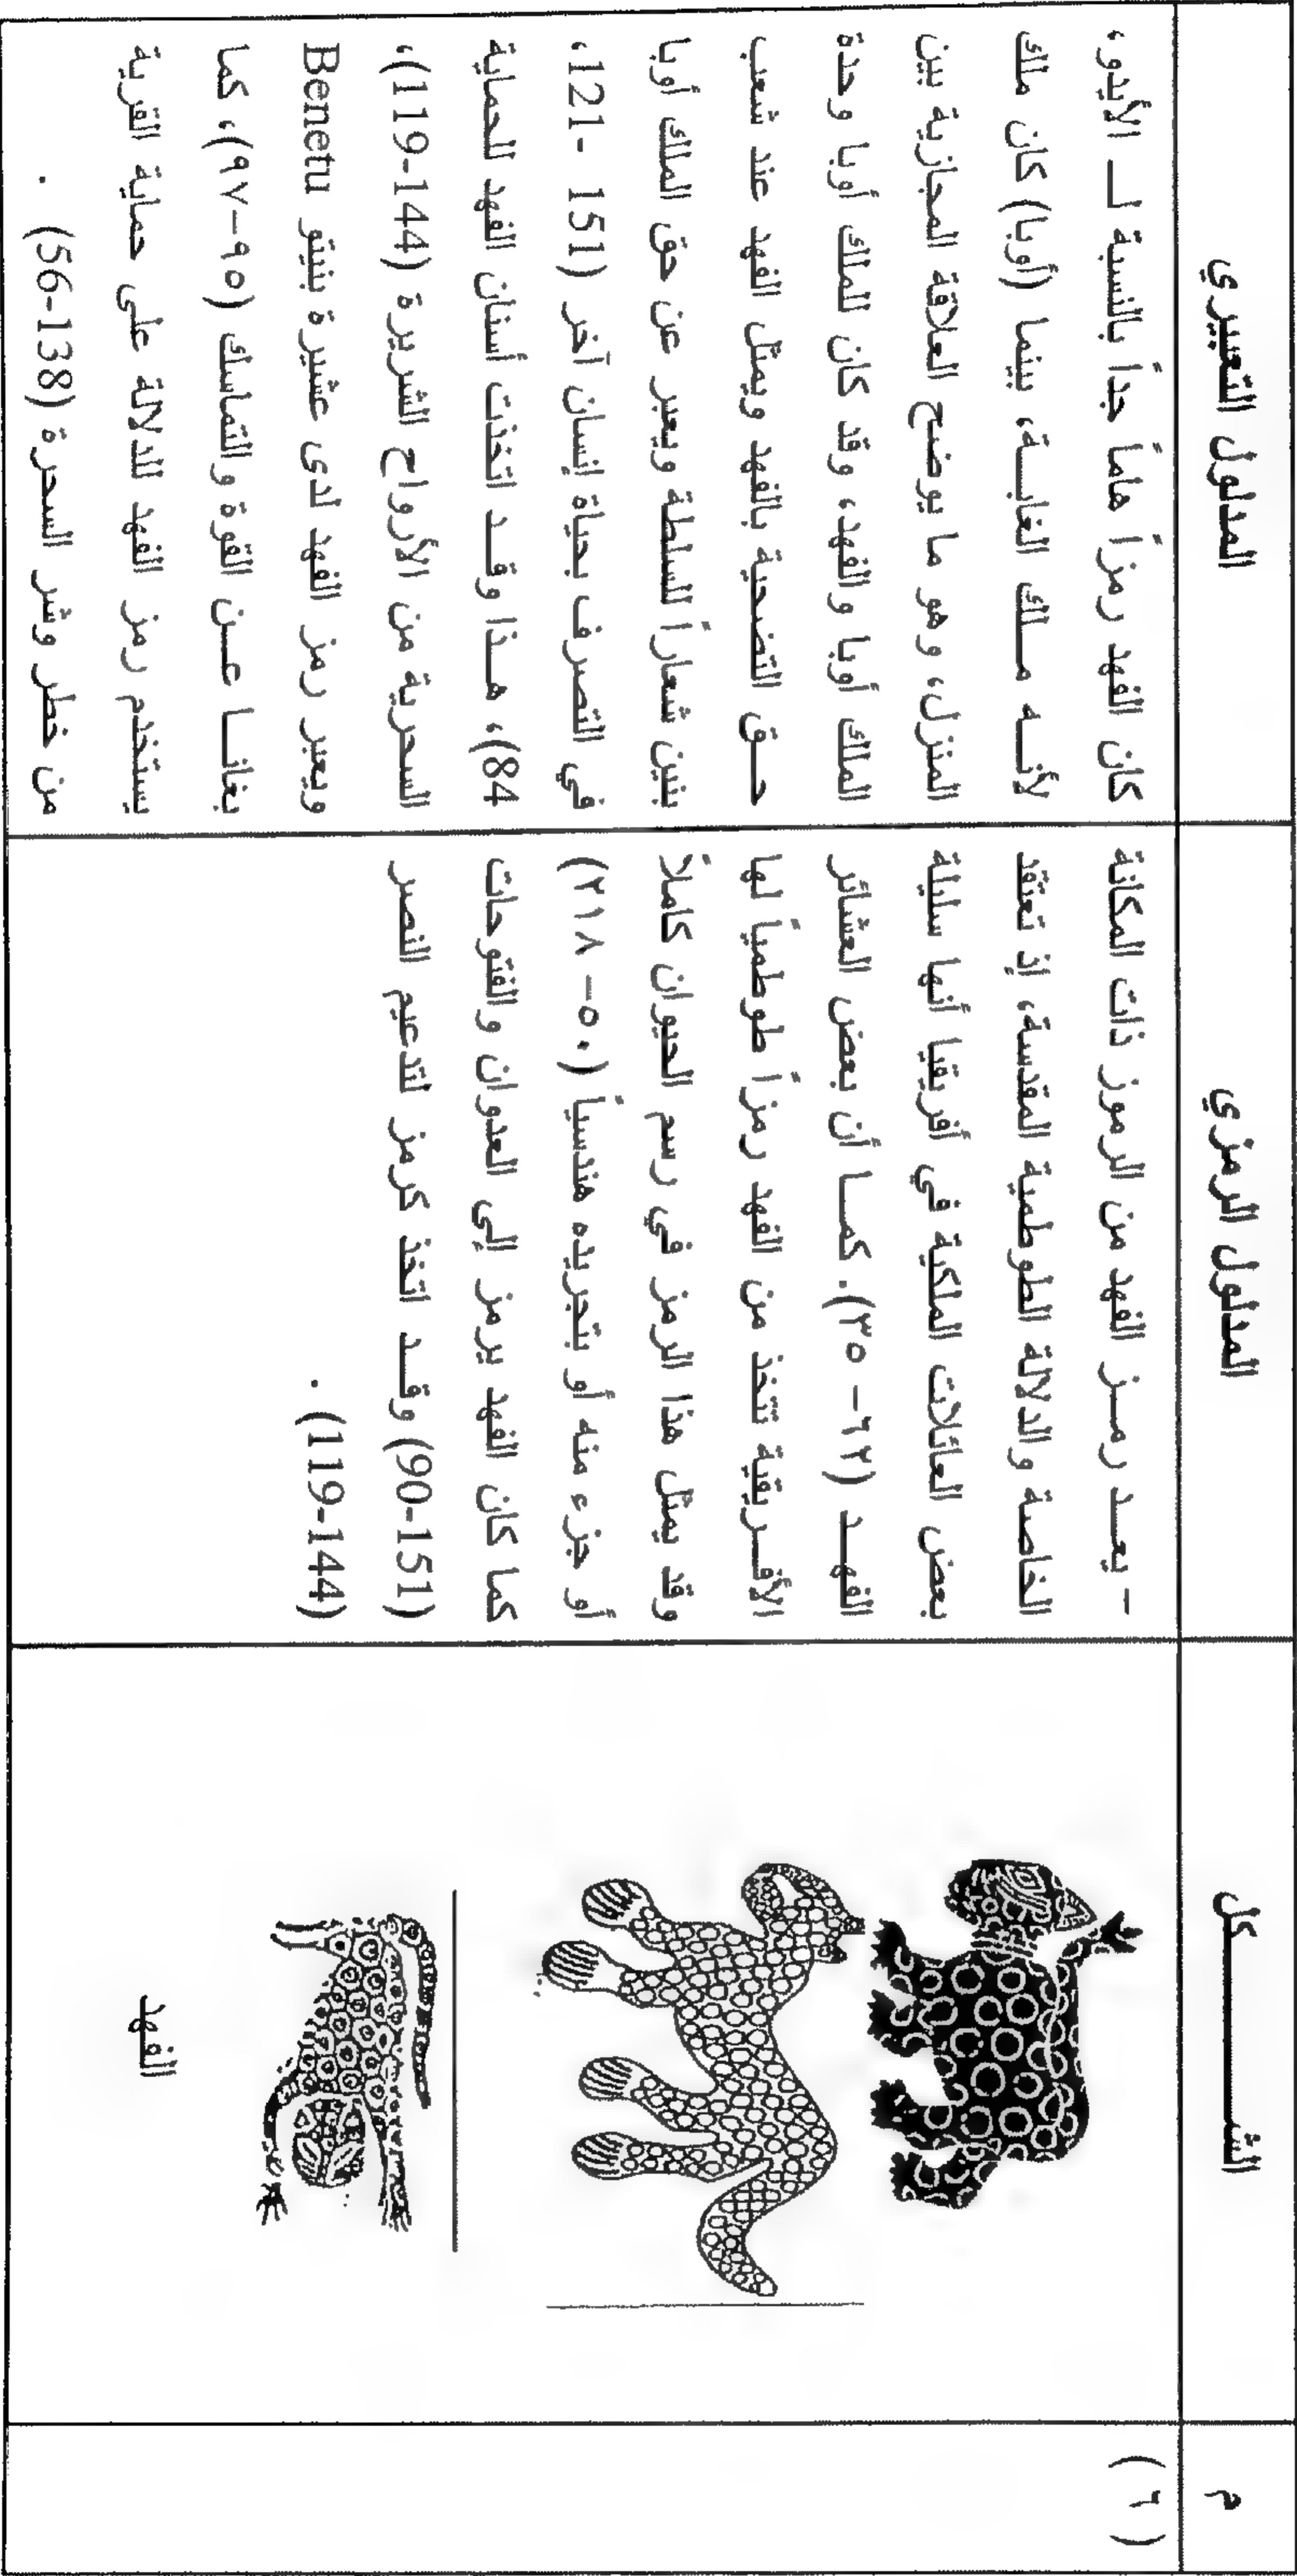 م
الشـــــــــكل
المدلول الرمزي
المدلول التعبيري
( ٦ )
الفهد
– يعـــد رمـــز الفهد من الرموز ذات المكانة
الخاصة والدلالة الطوطمية المقدسة، إذ تعتقد
بعض العائلات الملكية في أفريقيا أنها سليلة
الفهـــد (٦٢ – ٣٥). كمـــا أن بعض العشائر
الأفـــريقية تتخذ من الفهد رمزاً طوطمياً لها
وقد يمثل هذا الرمز في رسم الحيوان كاملاً
أو جزء منه أو بتجريده هندسياً (٥٠ – ٢١٨)
كما كان الفهد يرمز إلى العدوان والفتوحات
(90-151) وقـــد اتخذ كرمز لتدعيم النصر
(119-144) .
كان الفهد رمزاً هاماً جداً بالنسبة لـــ الأيدو،
لأنـــه مـــلك الغابـــة، بينما (أوبا) كان ملك
المنزل، وهو ما يوضح العلاقة المجازية بين
الملك أوبا والفهد، وقد كان للملك أوبا وحدة
حـــق التضحية بالفهد ويمثل الفهد عند شعب
بنين شعاراً للسلطة ويعبر عن حق الملك أوبا
في التصرف بحياة إنسان آخر (151 -121،
84)، هـــذا وقـــد اتخذت أسنان الفهد للحماية
السحرية من الأرواح الشريرة (144-119)،
ويعبر رمز الفهد لدى عشيرة بنيتو Benetu
بغانـــا عـــن القوة والتماسك (٩٥–٩٧)، كما
يستخدم رمز الفهد للدلالة على حماية القرية
من خطر وشر السحرة (138-56) .